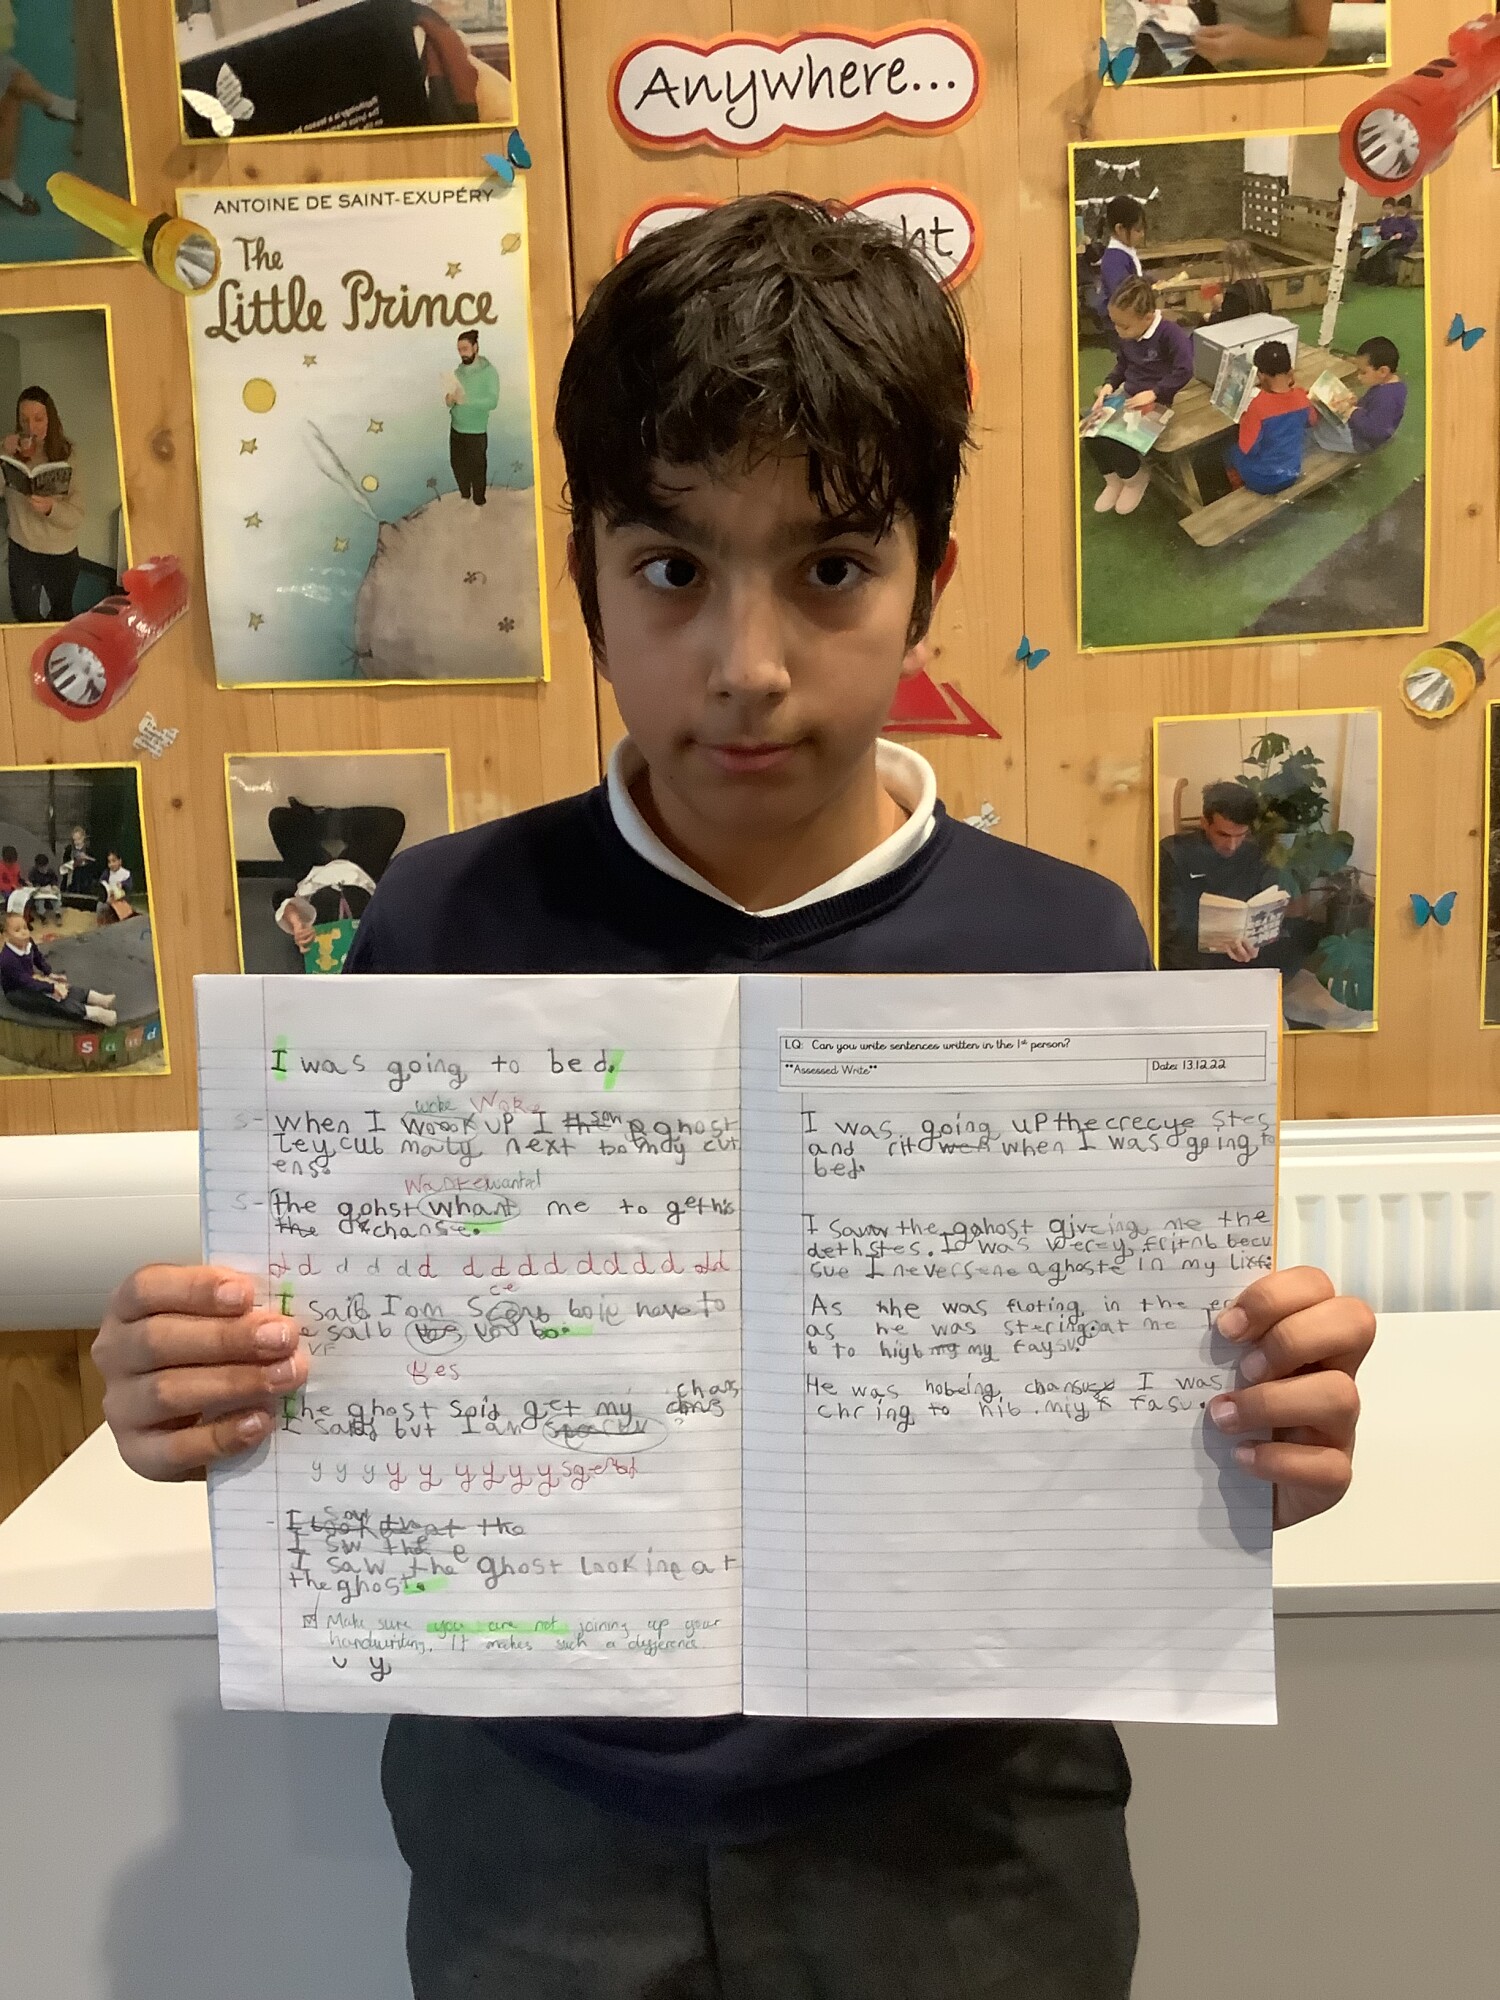 Anywhere...
ht
ANTOINE DE SAINT-EXUPÉRY
The
Little Prince
sand
I was going to bed.
woke Woke
s- when I woook UP I saw a ghost
ley cut maty next to my cut
ens.
Wanted wanted
s- the gohst whant me to get his
the chanse.
d d d d d d d d d d d d d d dd
ce
I said I am have to
e saib yes you
Yes
chas
The ghost said get my
I said but I am
y y y y y y y y y
saw
I look the
I sw the
I saw the ghost looking at
the ghost.
Make sure you are not joining up your
handwriting. It makes such a difference.
y
LQ: Can you write sentences written in the 1st person?
**Assessed Write**
Date: 13.12.22
I was going up the crecye stes
and rit when I was going to
bed.
I saw the gahost giveing me the
deth stes. I was verey fritnb becu
sue I never sene a ghoste in my life
As hhe was floting in the
as he was stering at me
b to hiyb my faysu.
He was hobeing chansu I was
chring to hib miy fasu.